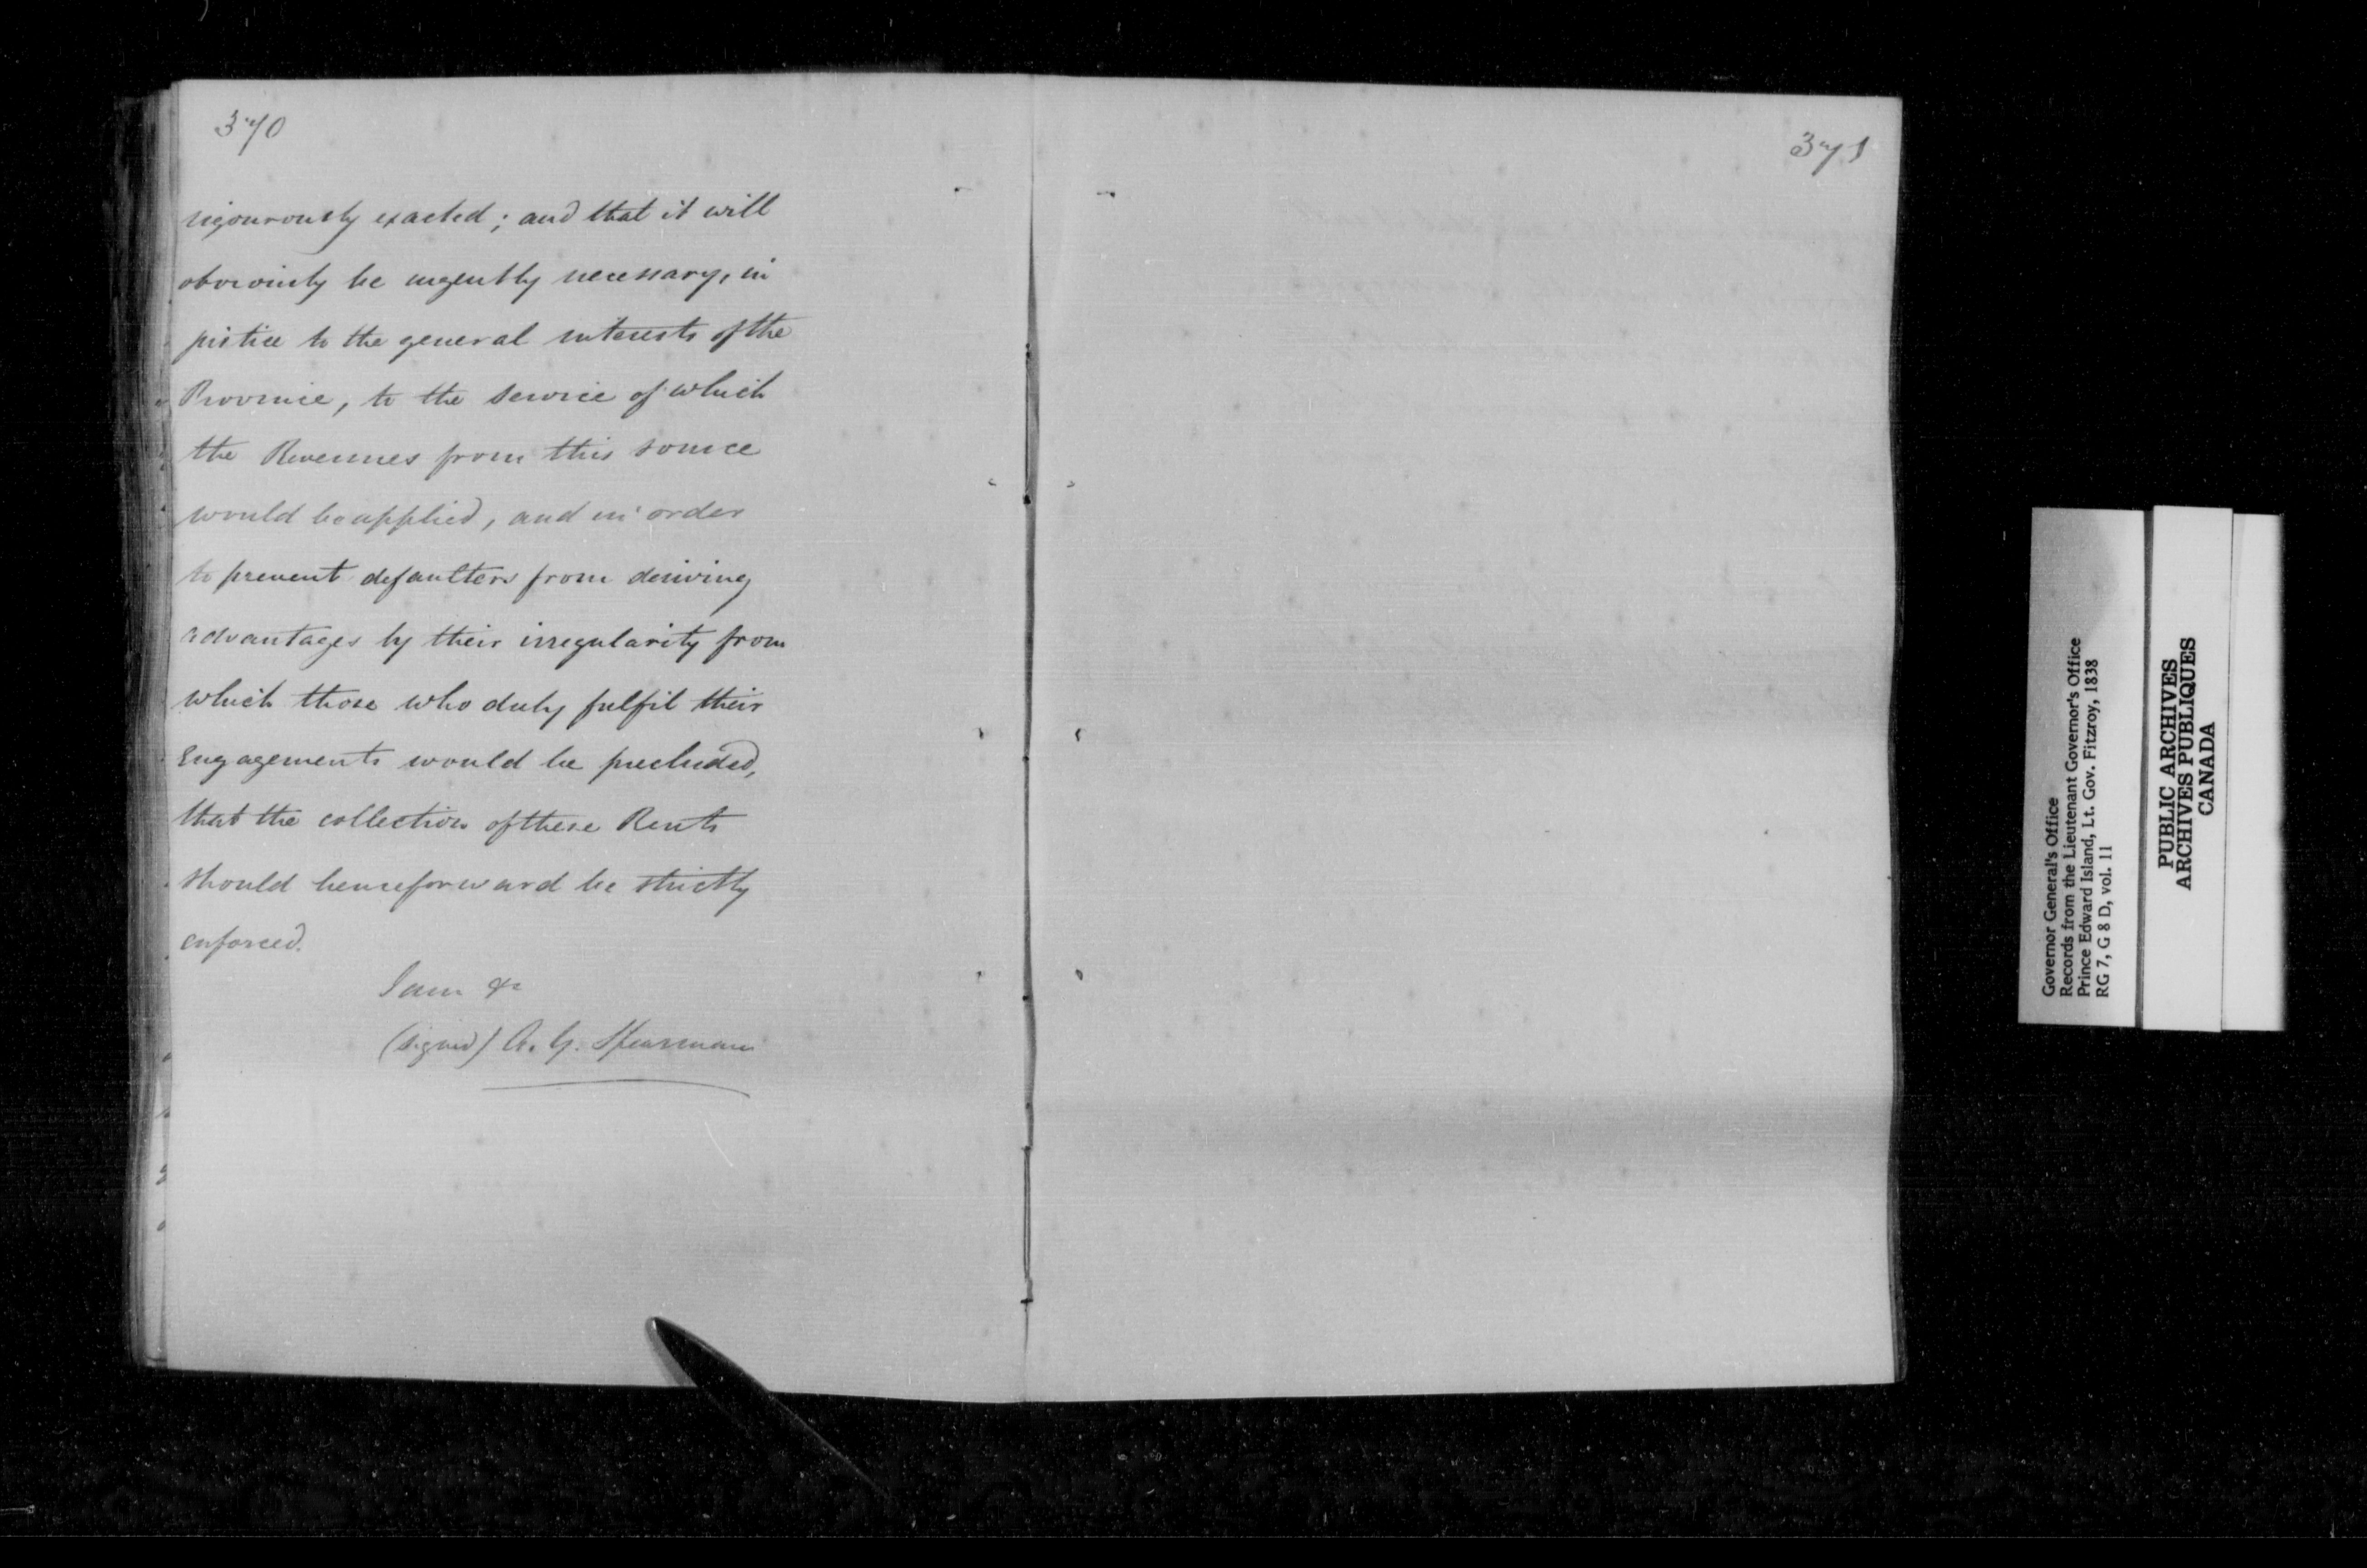 370
rigourously exacted; and that it will
obviously be urgently necessary, in
justice to the general interests of the
Province, to the service of which
the Revenues from this source
would be applied, and in order
to prevent defaulters from deriving
advantages by their irregularity from
which those who duly fulfil their
Engagements would be precluded,
that the collection of these Rents
should henceforward be strictly
enforced.
I am &c
(signed) A. Y. Spearman
371
Governor General's Office
Records from the Lieutenant Governor's Office
Prince Edward Island, Lt. Gov. Fitzroy, 1838
RG 7, G 8 D, vol. 11
PUBLIC ARCHIVES
ARCHIVES PUBLIQUES
CANADA